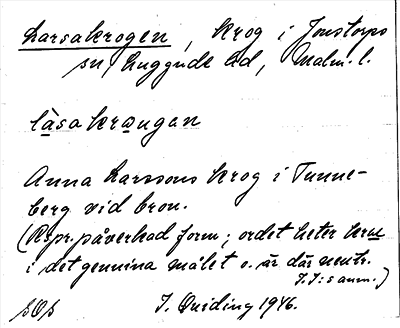 Larsakrogen, krog i Jonstorps
sn, Luggude hd, Malm. l.
làsakrąugan
Anna Larssons krog i Tunne-
berg vid bron.
(Rspr. påverkad form; ordet heter kru
i det genuina målet o. är där neutr.
I. I:s anm.)
I. Quiding 1946.